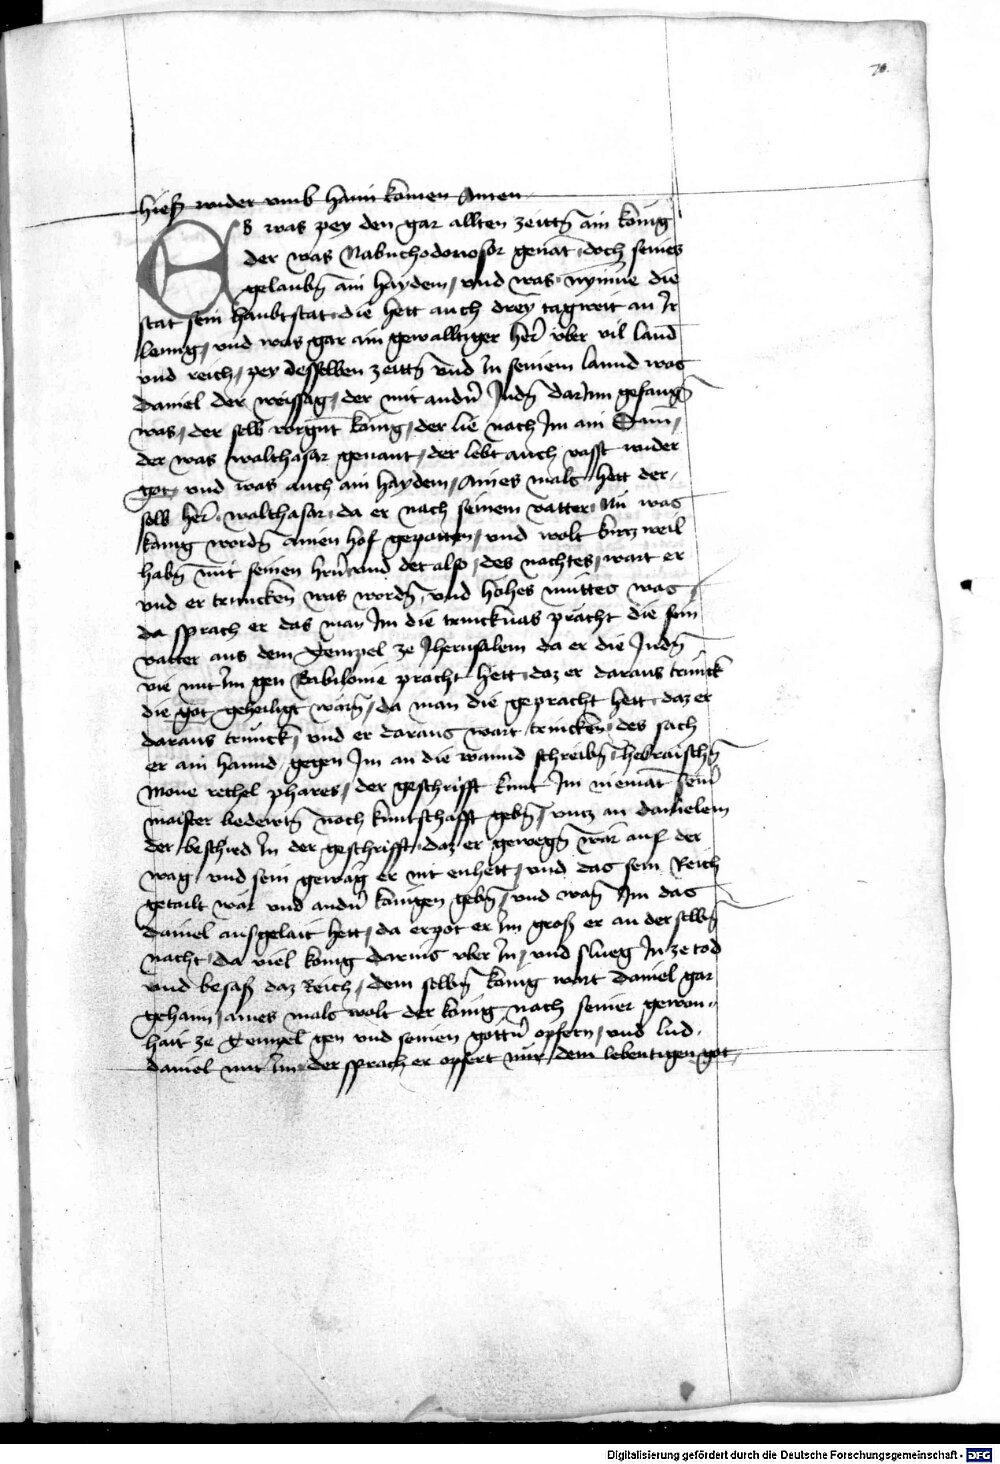 70.
hieß wider umb haim komen Amen
Es was pey den gar allten zeittn̄ ain konig
der was Nabuchodonosor genāt, doch seines
gelaubn̄ ain haydem, und was Nynive die
stat sein haubtstat, die hett auch drey tagweit an ir
leng, und was gar ain gewalltiger her uber vil land
und reich, pey desselben zeittn̄ und in seinem lannd was
Daniel der weissag, der mit andn̄ Judn̄ darinn gefangn̄
was, der selb vorgnt konig, der lie nach im ain Sun,
der was walthasar genant, der lebt auch vasst wider
got, und was auch ain haydem, Aines mals hett der
selb her walthasar, da er nach seinem vatter Nu was
kunig wordn̄ ainen hof gepotten, und wolt kurczweil
habn̄ mit seinen hrn̄ und det also, des nachtes, wart er
und er truncken was wordn̄, und hohes muttes was,
da sprach er das man im die trinckuas pracht die sein
vatter aus dem Tempel ze Jherusalem da er die Judn̄
vie mit im gen Babilonie pracht hett, daz er daraus trunck
die got geheiligt warn̄, da man die gepracht hett, daz er
daraus trunck, und er daraus wart trincken, des sach
er ain hannd gegen im an die wannd schreibn̄ hebraischn̄
Mane rethel phares, der geschrifft kunt im niemāt seiner
maister bedewtn̄ noch kuntschafft gebn̄, uncz an danielem
der beschied in der geschrifft, daz er gewegn̄ war auf der
wag, und sein gewag er nit enhett, und das sein Reich
getailt war und andn̄ kunigen gebn̄, und wan̄ im das
Daniel ausgelait hett, da erpot er im groß er an der selbn̄
nacht, da viel konig darius uber in, und slueg in ze tod
und besaß daz Reich, dem selbn̄ konig wart Daniel gar
gehaim, aines mals wolt der konig nach seiner gewon=
hait ze Tempel gen und seinen gottn̄ opfern, und lud
daniel mit im, der sprach, er opfert nur dem lebentigen got,
Digitalisierung gefördert durch die Deutsche Forschungsgemeinschaft - DFG